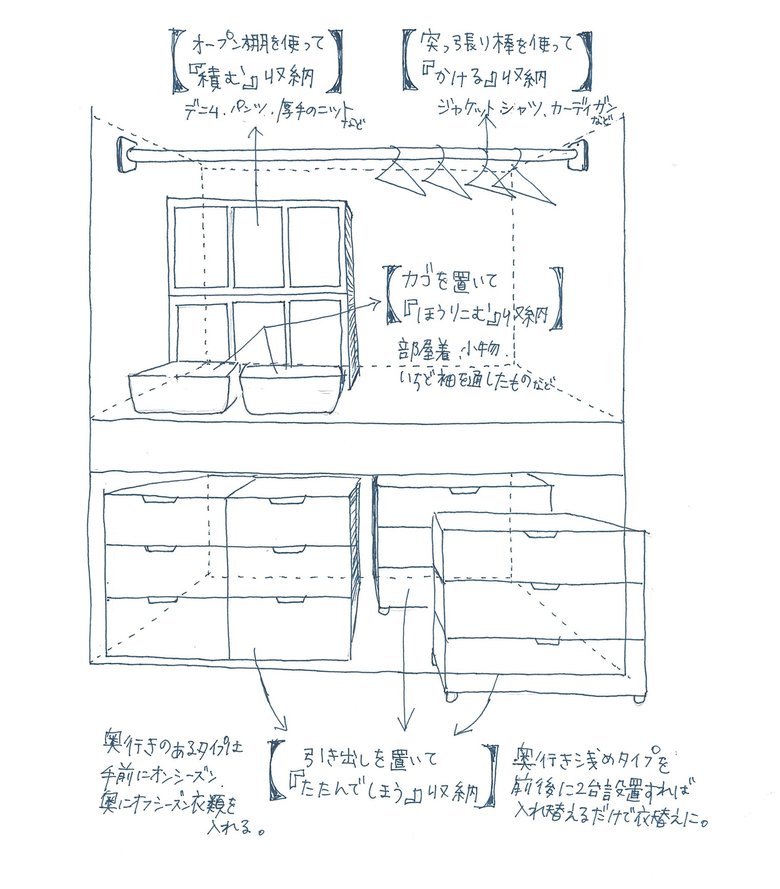 【オープン棚を使って
『積む』収納】
デニム、パンツ、厚手のニット
など
【突っ張り棒を使って
『かける』収納】
ジャケット シャツ、カーディガン
など
【カゴを置いて
『ほうりこむ』収納】
部屋着、小物、
いちど袖を通したものなど
奥行きのあるタイプは
手前にオンシーズン、
奥にオフシーズン衣類を
入れる。
【引き出しを置いて
『たたんでしまう』収納】
奥行き浅めタイプを
前後に2台設置すれば
入れ替えるだけで衣替えに。